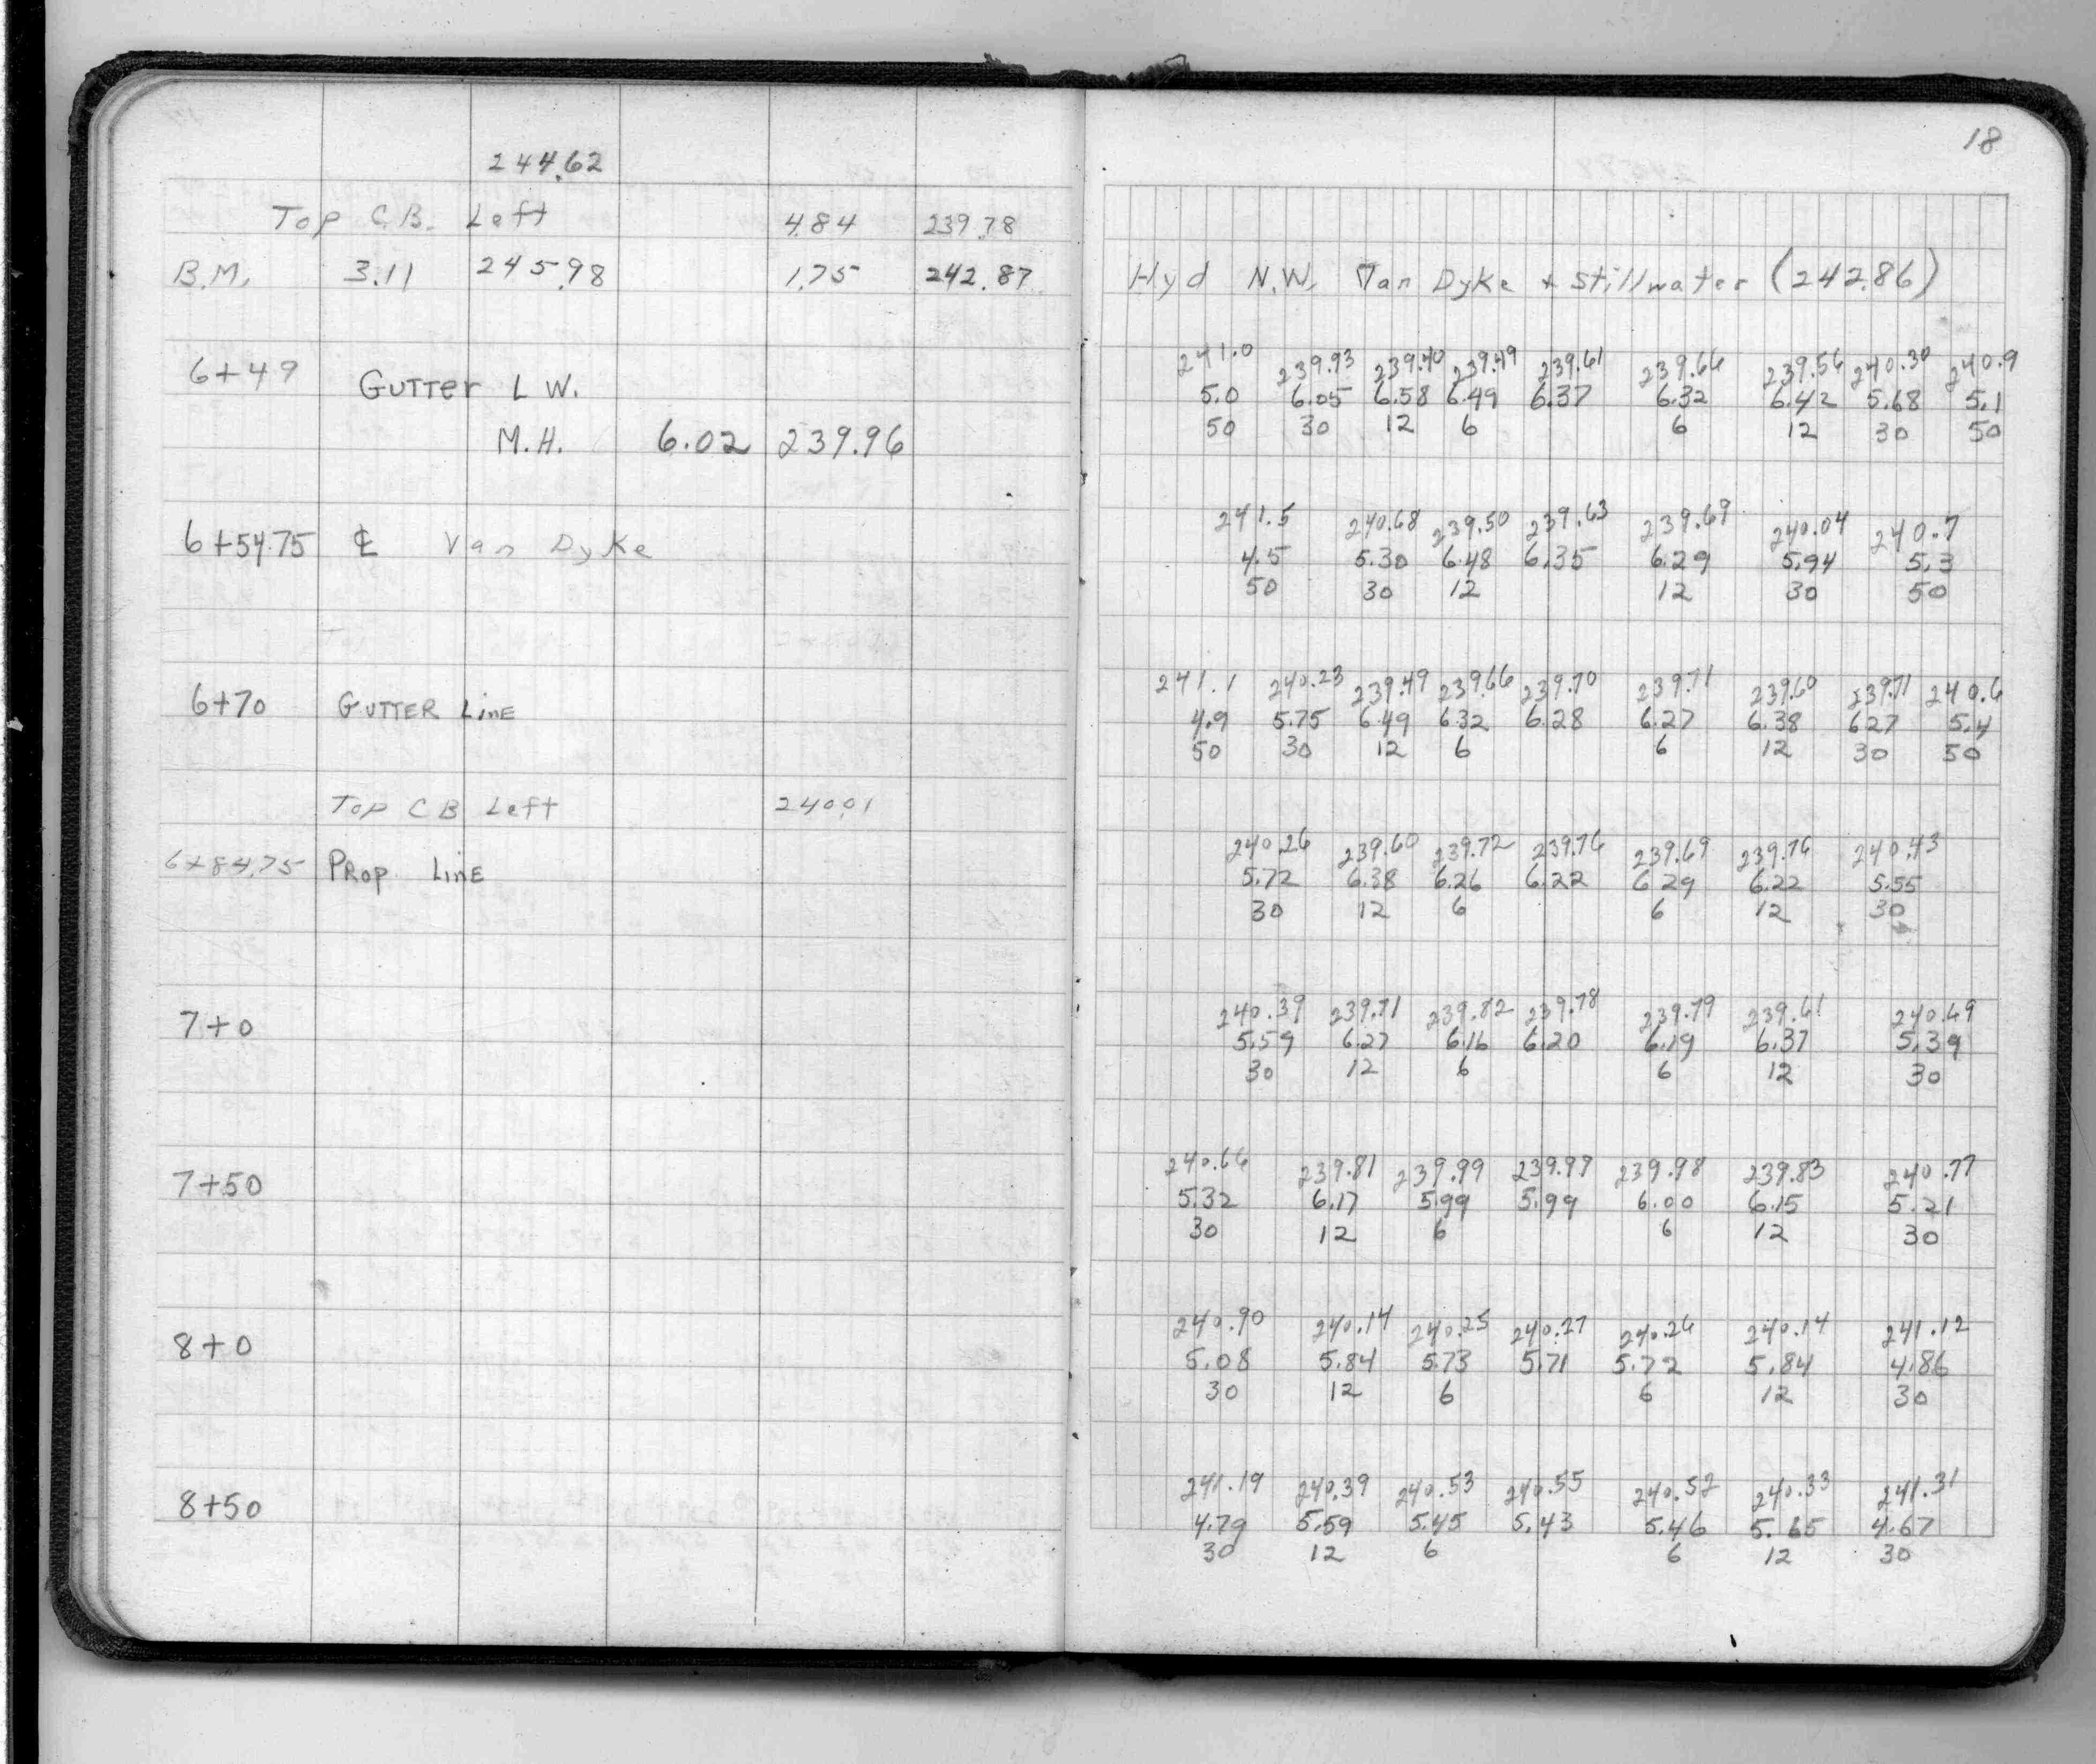 18
244.62
Top C.B. Left 4.84 239.78
B.M. 3.11 245.98 1.75 242.87 Hyd N.W. Van Dyke + Stillwater (242.86)
6+49 Gutter L W.
241.0 239.93 239.40 239.49 239.61 239.66 239.56 240.30 240.9
5.0 6.05 6.58 6.49 6.37 6.32 6.42 5.68 5.1
50 30 12 6 6 12 30 50
M.H. 6.02 239.96
6+54.75 ℄ Van Dyke
241.5 240.68 239.50 239.63 239.69 240.04 240.7
4.5 5.30 6.48 6.35 6.29 5.94 5.3
50 30 12 12 30 50
6+70 Gutter Line
241.1 240.23 239.49 239.66 239.70 239.71 239.60 239.71 240.6
4.9 5.75 6.49 6.32 6.28 6.27 6.38 6.27 5.4
50 30 12 6 6 12 30 50
Top C B Left 240.01
6+84.75 Prop. Line
240.26 239.60 239.72 239.76 239.69 239.76 240.43
5.72 6.38 6.26 6.22 6.29 6.22 5.55
30 12 6 6 12 30
7+0
240.39 239.71 239.82 239.78 239.79 239.61 240.49
5.59 6.27 6.16 6.20 6.19 6.37 5.39
30 12 6 6 12 30
7+50
240.66 239.81 239.99 239.99 239.98 239.83 240.77
5.32 6.17 5.99 5.99 6.00 6.15 5.21
30 12 6 6 12 30
8+0
240.90 240.14 240.25 240.27 240.26 240.14 241.12
5.08 5.84 5.73 5.71 5.72 5.84 4.86
30 12 6 6 12 30
8+50
241.19 240.39 240.53 240.55 240.52 240.33 241.31
4.79 5.59 5.45 5.43 5.46 5.65 4.67
30 12 6 6 12 30